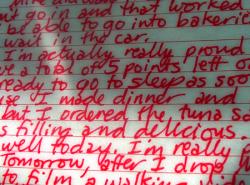 out go in and that worked
be able to go into bakerie
wait in the car.
I'm actually really proud
ve a total of 5 points left o
ready to go to sleep as soo
use I made dinner and
but I ordered the tuna sa
s filling and delicious
well today. I'm really f
Tomorrow, after I drop
to film a walking